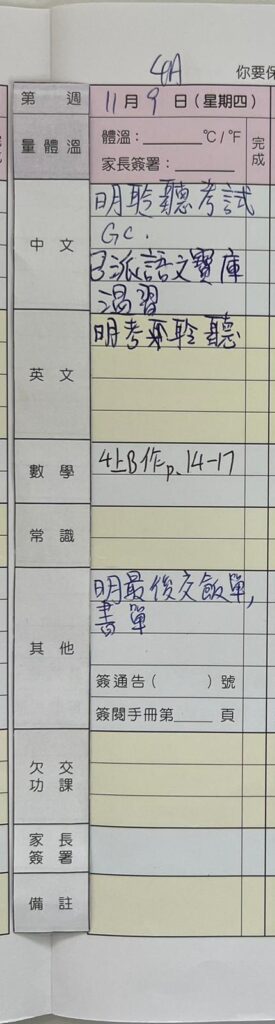 4A
你要保
第 週
11月9日(星期四)
量體溫
體溫:______℃/℉
家長簽署:______
完成
中文
明聆聽考試
GC.
已派語文寶庫
溫習
英文
明考聆聽
數學
4上B作p.14-17
常識
其他
明最後交飯單,
書單
簽通告( )號
簽閱手冊第____頁
欠交功課
家長簽署
備註